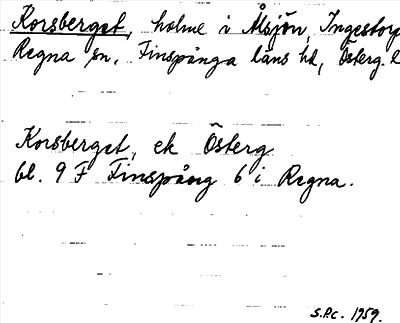 Korsberget, holme i Ålsjön, Ingestorp
Regna sn, Finspånga läns hd, Österg. l
Korsberget, ek Österg
bl. 9 F Finspång 6 i Regna.
S.P.c. 1959.